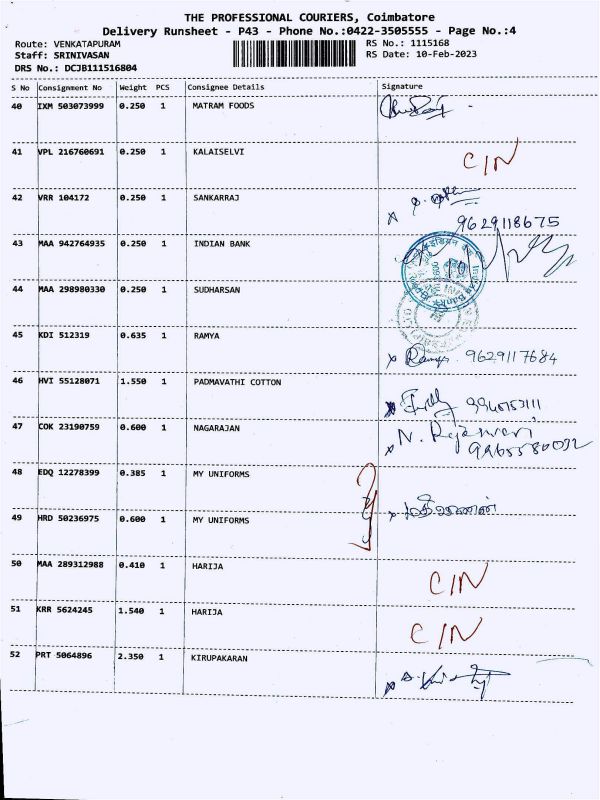 THE PROFESSIONAL COURIERS, Coimbatore
Delivery Runsheet - P43 - Phone No.:0422-3505555 - Page No.:4
Route: VENKATAPURAM RS No.: 1115168
Staff: SRINIVASAN RS Date: 10-Feb-2023
DRS No.: DCJB111516804
S No Consignment No Weight PCS Consignee Details Signature
40 IXM 503073999 0.250 1 MATRAM FOODS
41 VPL 216760691 0.250 1 KALAISELVI C/N
42 VRR 104172 0.250 1 SANKARRAJ
9629118675
43 MAA 942764935 0.250 1 INDIAN BANK
44 MAA 298980330 0.250 1 SUDHARSAN
45 KDI 512319 0.635 1 RAMYA
x Ramya 9629117684
46 HVI 55128071 1.550 1 PADMAVATHI COTTON
47 COK 23190759 0.600 1 NAGARAJAN
x N. Rajeswari
48 EDQ 12278399 0.385 1 MY UNIFORMS
49 HRD 50236975 0.600 1 MY UNIFORMS
50 MAA 289312988 0.410 1 HARIJA C/N
51 KRR 5624245 1.540 1 HARIJA C/N
52 PRT 5064896 2.350 1 KIRUPAKARAN